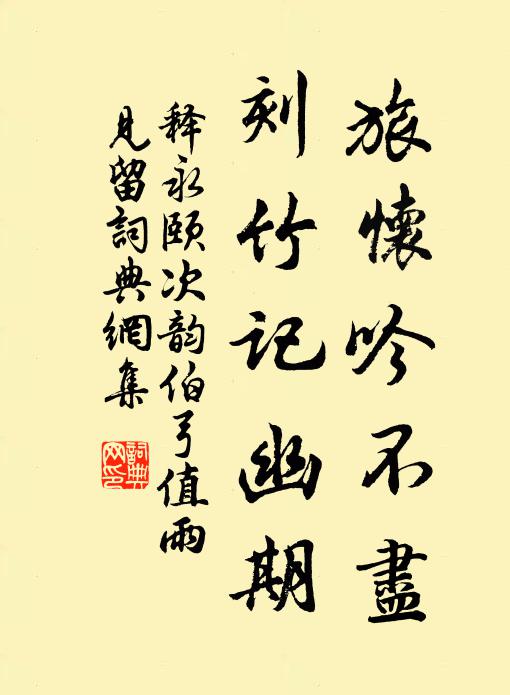 旅懷吟不盡
刻竹記幽期
释永颐次韵伯弓值雨
見留詞典網集
詞典
网印